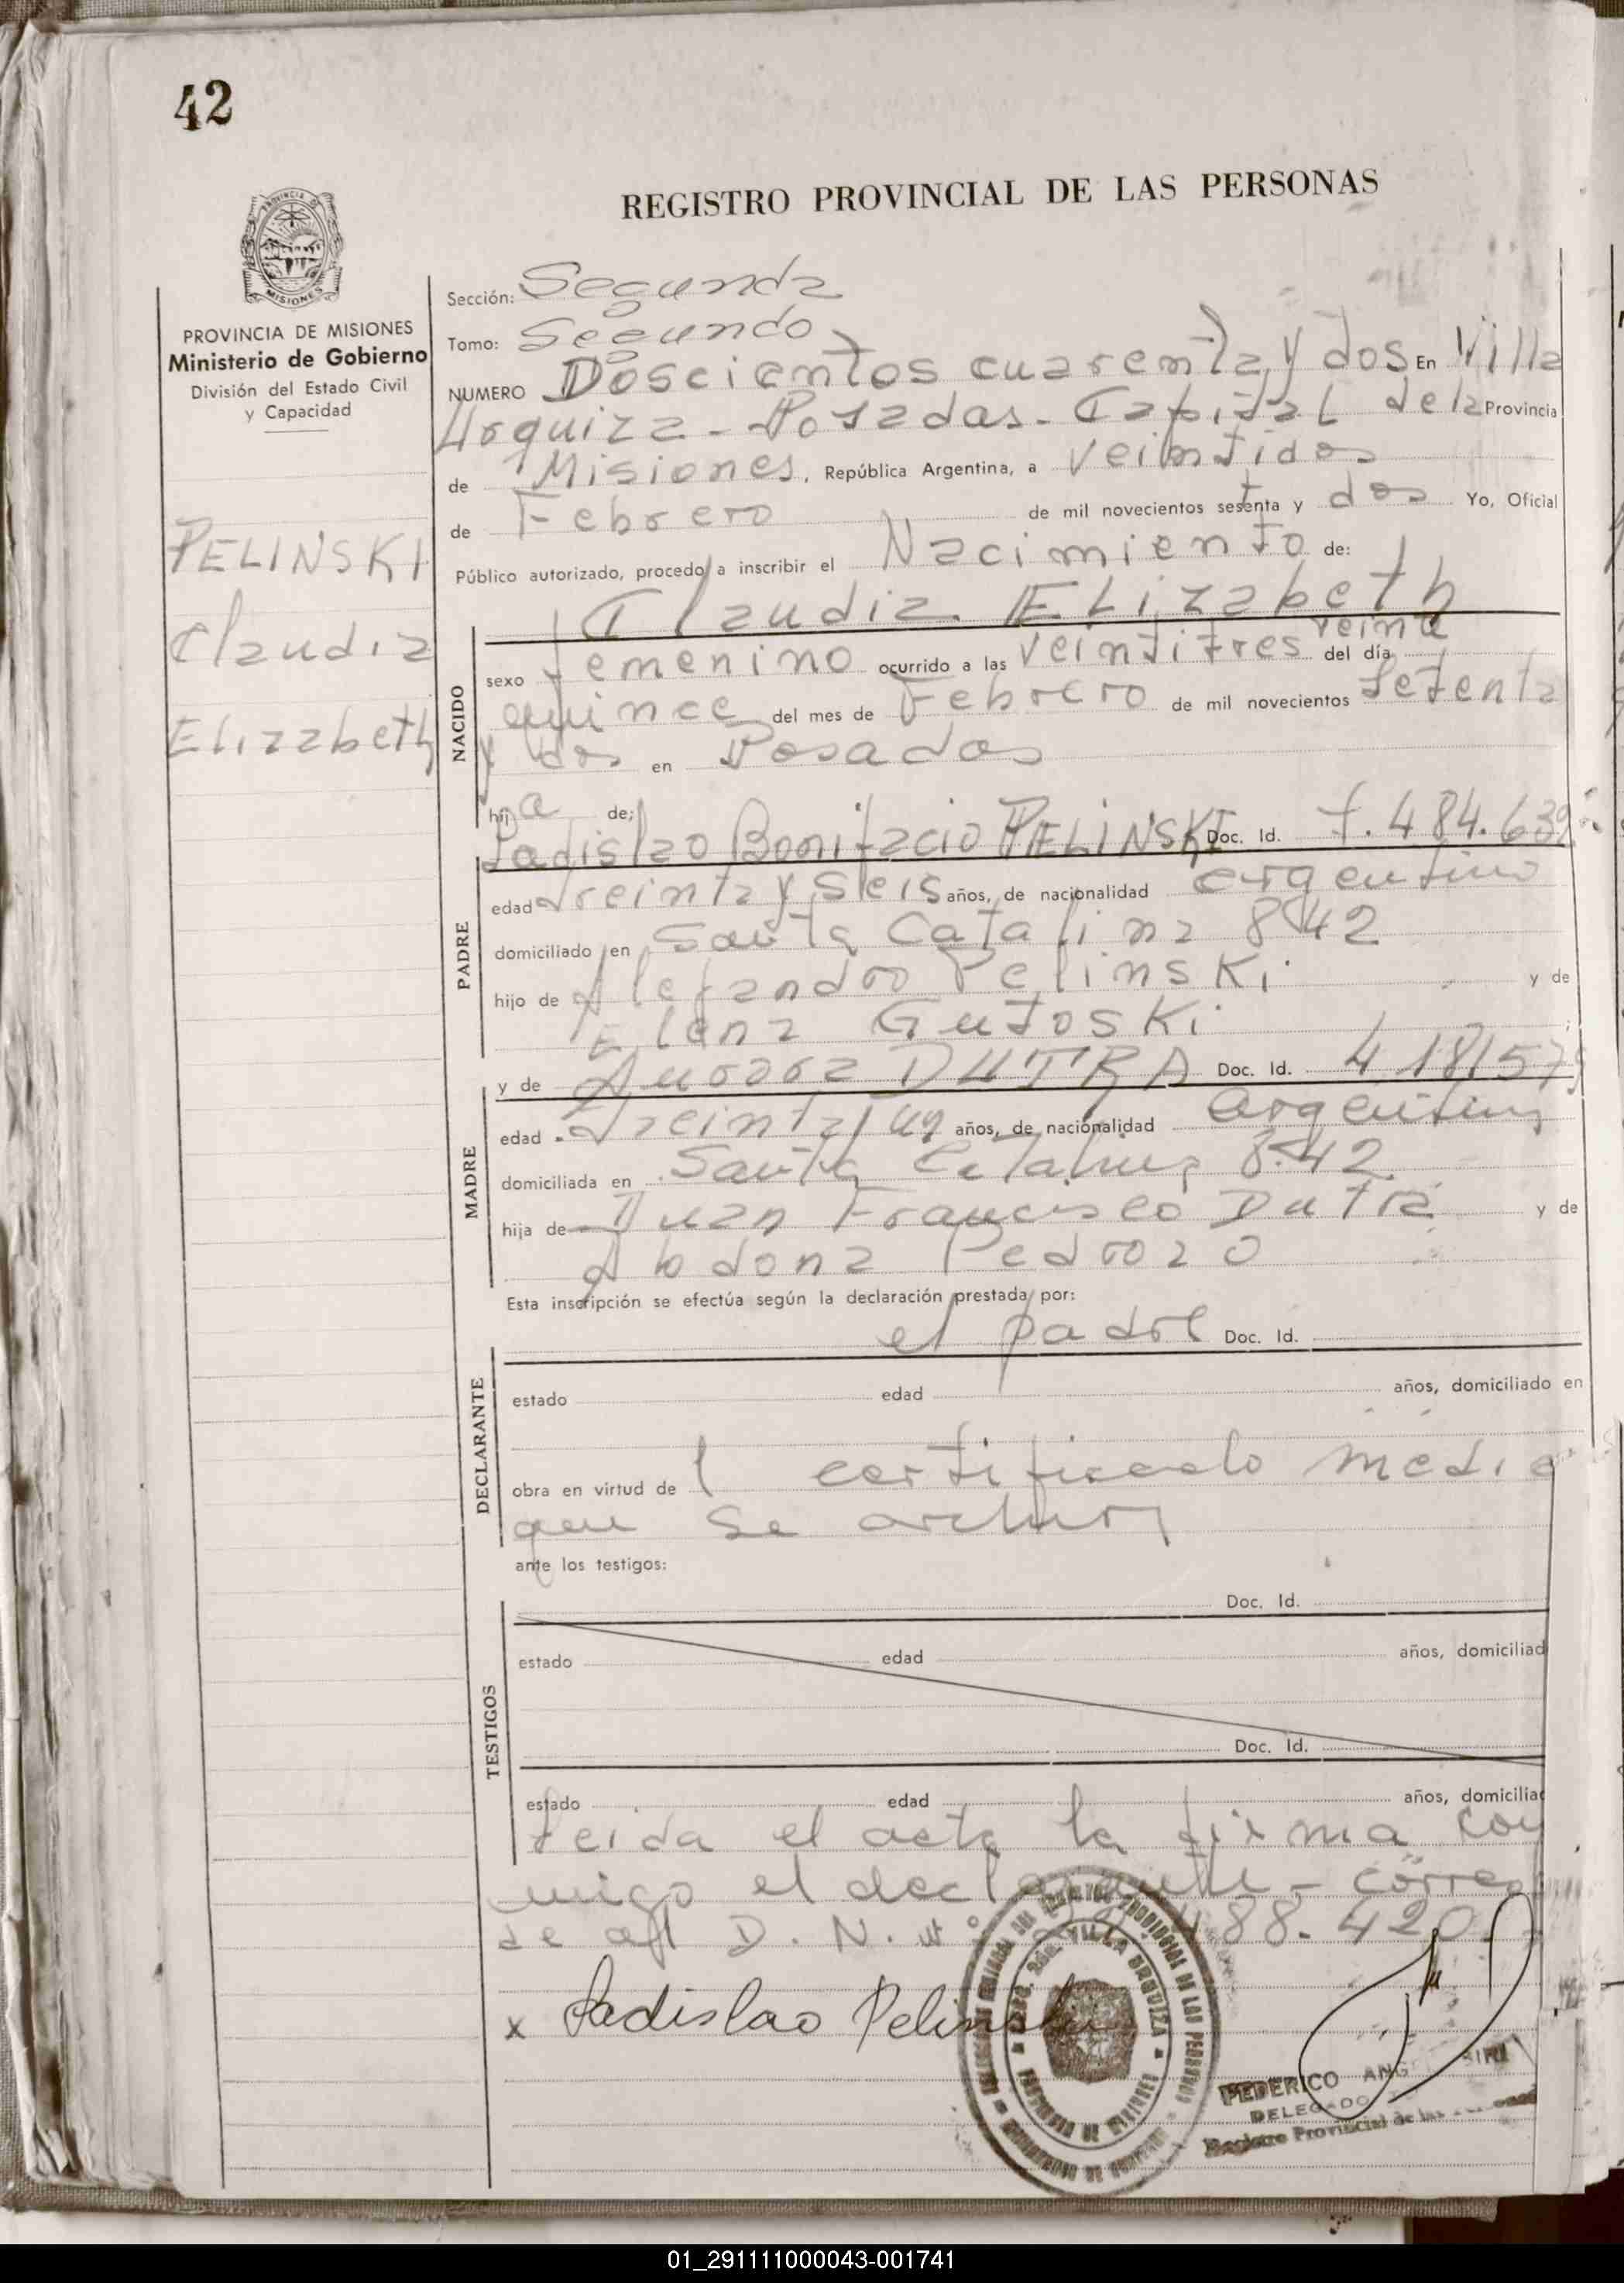 42
REGISTRO PROVINCIAL DE LAS PERSONAS
MISIONES
PROVINCIA DE MISIONES
Ministerio de Gobierno
División del Estado Civil
y Capacidad
PELINSKI
Claudia
Elizabeth
Sección: Segunda
Tomo: Segundo
NUMERO Doscientos cuarenta y dos En Villa
Urquiza - Posadas - Capital de la Provincia
de Misiones, República Argentina, a veintidos
de Febrero de mil novecientos sesenta y dos Yo, Oficial
Público autorizado, procedo a inscribir el Nacimiento de:
Claudia Elizabeth
NACIDO
sexo femenino ocurrido a las veintitres veinte del día
quince del mes de Febrero de mil novecientos setenta
y dos en Posadas
hij a de;
Ladislao Bonifacio PELINSKI Doc. Id. 7.484.639
PADRE
edad treinta y seis años, de nacionalidad argentino
domiciliado en Santa Catalina 842
hijo de Alejandro Pelinski y de
Elena Gutoski
y de Aurora DUTRA Doc. Id. 4 181 575
MADRE
edad treinta y un años, de nacionalidad argentina
domiciliada en Santa Catalina 842
hija de Juan Francisco Dutra y de
Abdona Pedrozo
Esta inscripción se efectúa según la declaración prestada por:
el padre Doc. Id.
DECLARANTE
estado edad años, domiciliado en
obra en virtud de l certificado medic
que se archiva
ante los testigos:
Doc. Id.
TESTIGOS
estado edad años, domiciliad
Doc. Id.
estado edad años, domiciliad
Leida el acta la firma con
migo el declarante - corres
de al D. N. 488.420
x Ladislao Pelinski
VILLA URQUIZA
PROVINCIA DE MISIONES
FEDERICO ANG
DELEGADO
Registro Provincial de las Personas
01_291111000043-001741